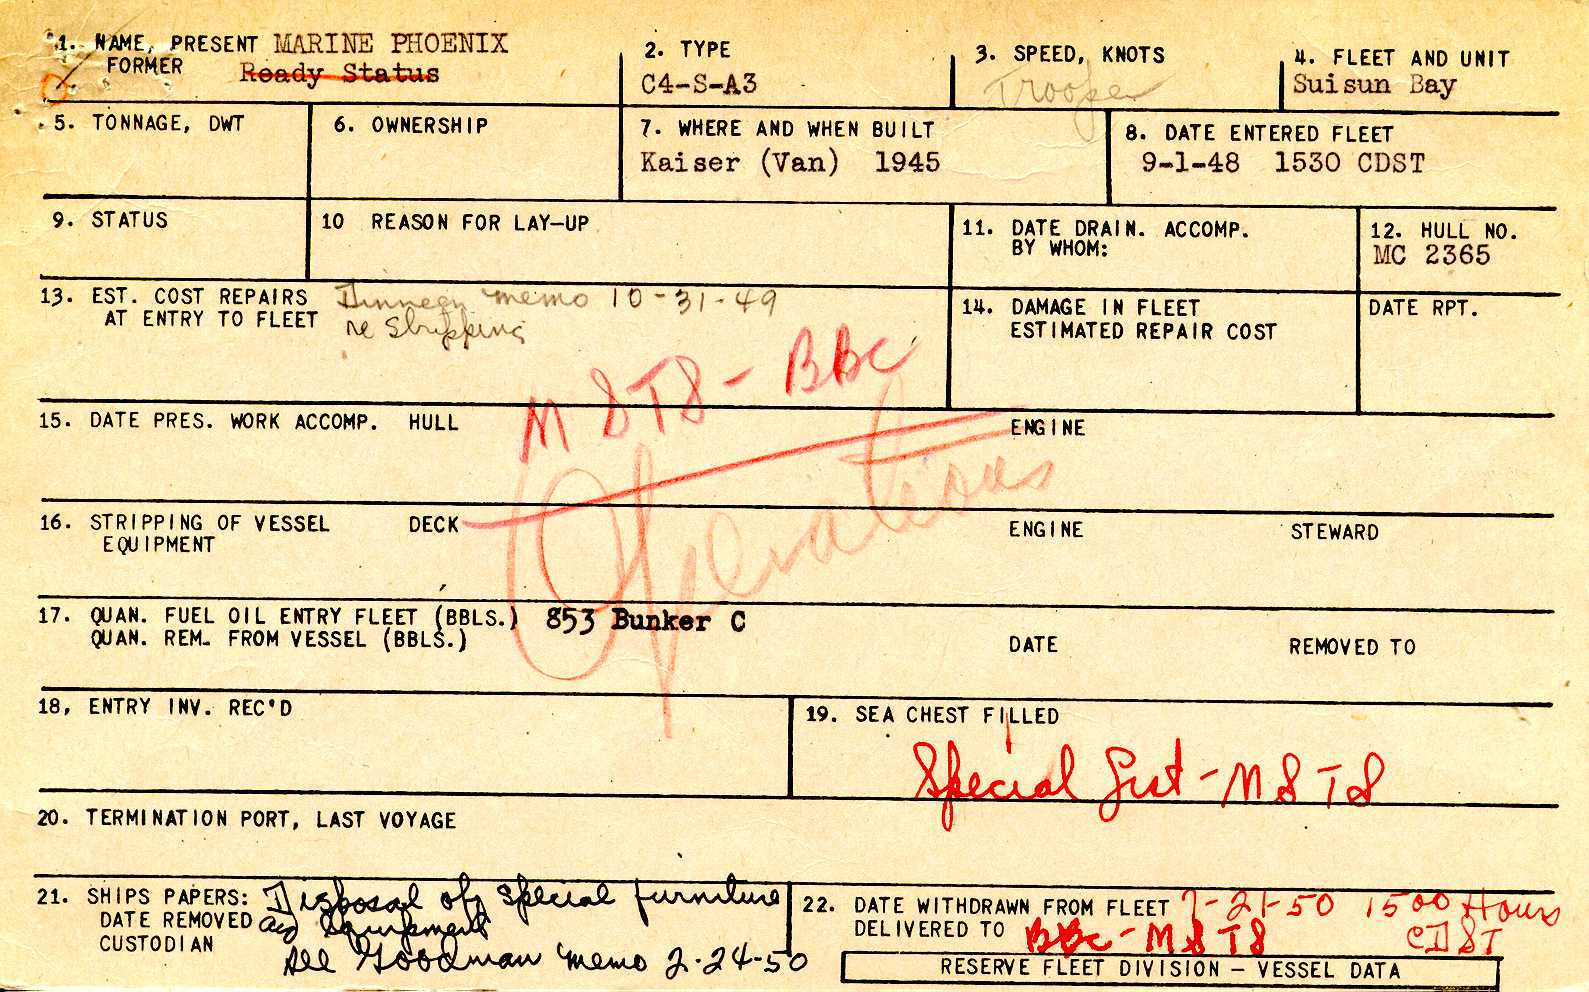 1. NAME, PRESENT MARINE PHOENIX
FORMER Ready Status
2. TYPE
C4-S-A3
3. SPEED, KNOTS
Trooper
4. FLEET AND UNIT
Suisun Bay
5. TONNAGE, DWT
6. OWNERSHIP
7. WHERE AND WHEN BUILT
Kaiser (Van) 1945
8. DATE ENTERED FLEET
9-1-48 1530 CDST
9. STATUS
10 REASON FOR LAY-UP
11. DATE DRAIN. ACCOMP.
BY WHOM:
12. HULL NO.
MC 2365
13. EST. COST REPAIRS
AT ENTRY TO FLEET
Dinneen memo 10-31-49
re Stripping
14. DAMAGE IN FLEET
ESTIMATED REPAIR COST
DATE RPT.
MSTS - BBC
15. DATE PRES. WORK ACCOMP. HULL
ENGINE
Operations
16. STRIPPING OF VESSEL
EQUIPMENT
DECK
ENGINE
STEWARD
17. QUAN. FUEL OIL ENTRY FLEET (BBLS.) 853 Bunker C
QUAN. REM. FROM VESSEL (BBLS.)
DATE
REMOVED TO
18, ENTRY INV. REC'D
19. SEA CHEST FILLED
Special List - MSTS
20. TERMINATION PORT, LAST VOYAGE
21. SHIPS PAPERS: Disposal of special furniture
DATE REMOVED and Equipment
CUSTODIAN
See Goodman memo 2-24-50
22. DATE WITHDRAWN FROM FLEET 7-21-50 1500 Hours
DELIVERED TO BBC-MSTS CDST
RESERVE FLEET DIVISION – VESSEL DATA